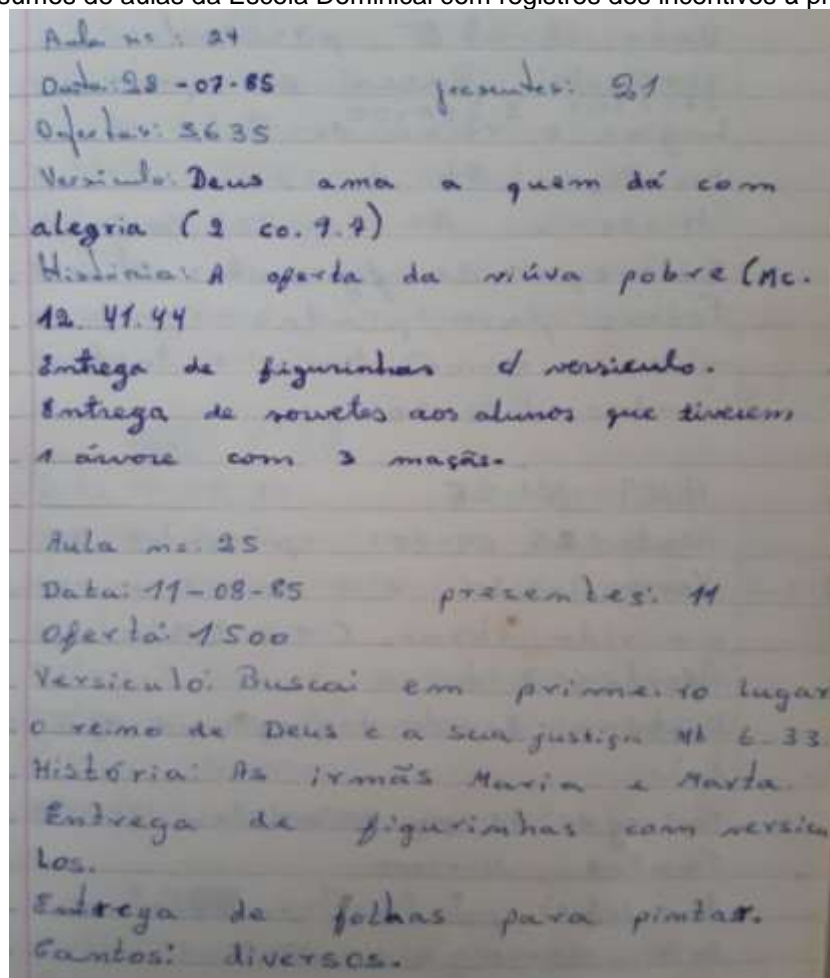 sumos de aulas da Escola Dominical com registros dos incentivos à pr
Aula nº: 24
Data: 28-07-85 presentes: 21
Ofertas: 3635
Versiculo: Deus ama a quem dá com
alegria (2 co. 9.7)
História: A oferta da viúva pobre (Mc.
12. 41.44
Entrega de figurinhas c/ versiculo.
Entrega de sorvetes aos alunos que tiverem
1 árvore com 3 maçãs.
Aula nº 25
Data: 11-08-85 presentes: 11
Oferta: 1500
Versiculo: Buscai em primeiro lugar
o reino de Deus e a sua justiça Mt 6-33
História: As irmãs Maria e Marta.
Entrega de figurinhas com versicu
los.
Entrega de folhas para pintar.
Cantos: diversos.